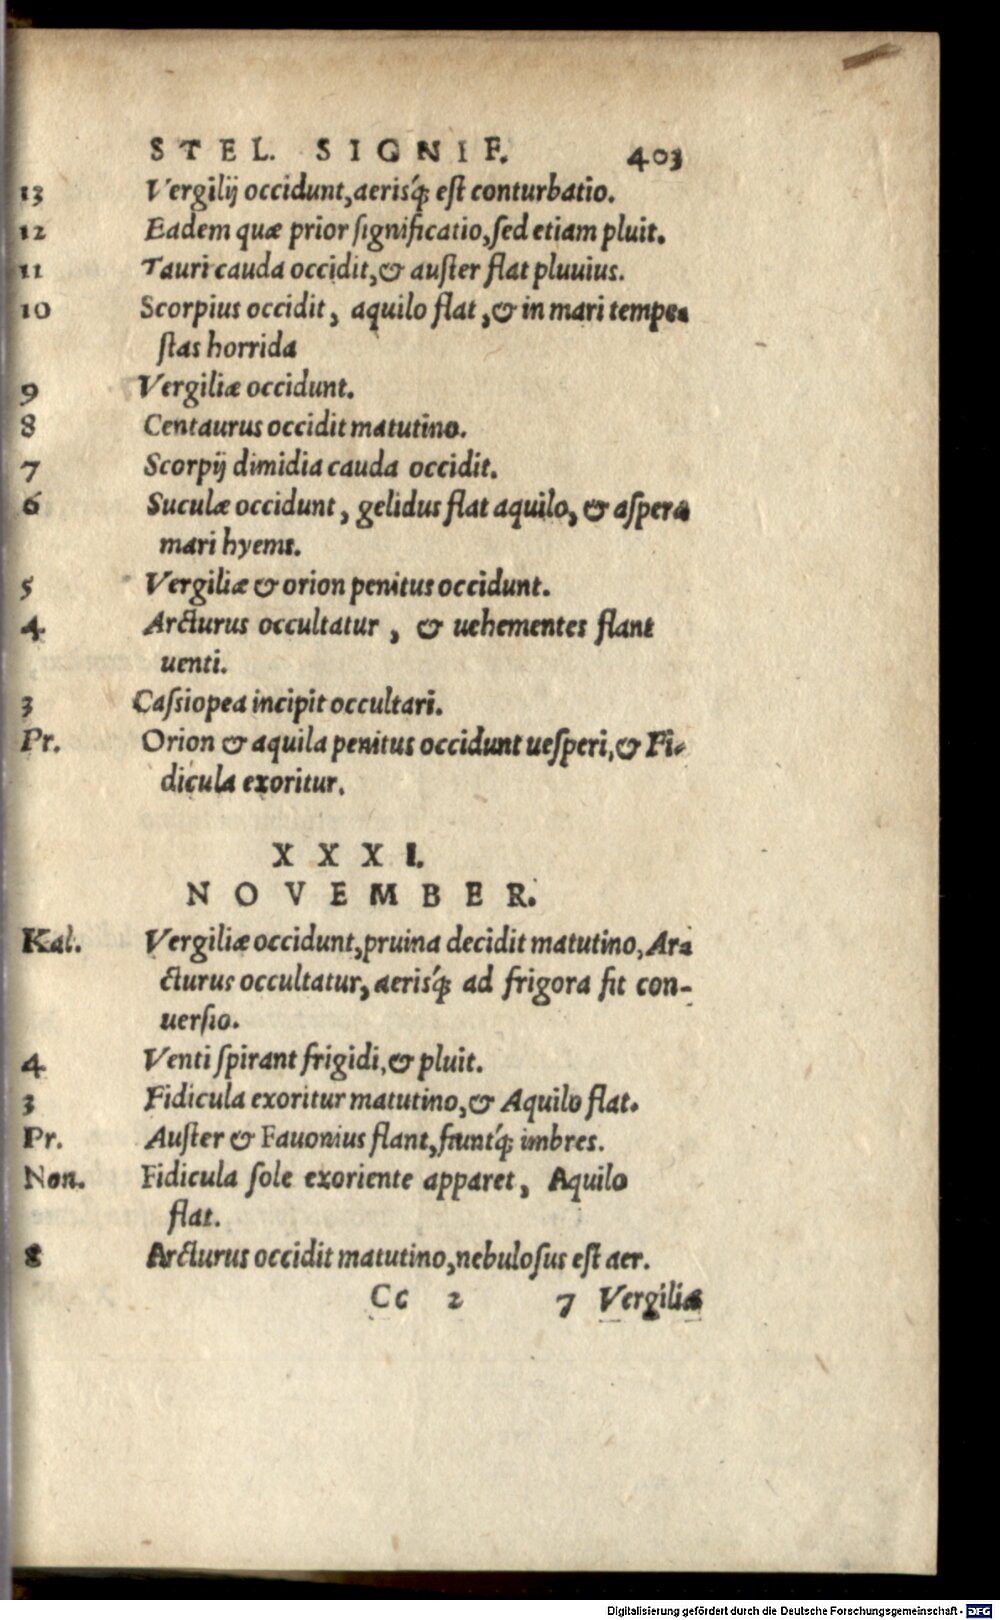 STEL. SIGNIF. 403
13 Vergilij occidunt, aerisq́; est conturbatio.
12 Eadem quæ prior significatio, sed etiam pluit.
11 Tauri cauda occidit, & auster flat pluuius.
10 Scorpius occidit, aquilo flat, & in mari tempe-
stas horrida
9 Vergiliæ occidunt.
8 Centaurus occidit matutino.
7 Scorpij dimidia cauda occidit.
6 Suculæ occidunt, gelidus flat aquilo, & aspera
mari hyems.
5 Vergiliæ & orion penitus occidunt.
4 Arcturus occultatur, & uehementes flant
uenti.
3 Cassiopea incipit occultari.
Pr. Orion & aquila penitus occidunt uesperi, & Fi-
dicula exoritur.
XXXI.
NOVEMBER.
Kal. Vergiliæ occidunt, pruina decidit matutino, Ar-
cturus occultatur, aerisq́; ad frigora fit con-
uersio.
4 Venti spirant frigidi, & pluit.
3 Fidicula exoritur matutino, & Aquilo flat.
Pr. Auster & Fauonius flant, fiuntq́; imbres.
Non. Fidicula sole exoriente apparet, Aquilo
flat.
8 Arcturus occidit matutino, nebulosus est aer.
Cc 2 7 Vergiliæ
Digitalisierung gefördert durch die Deutsche Forschungsgemeinschaft - DFG